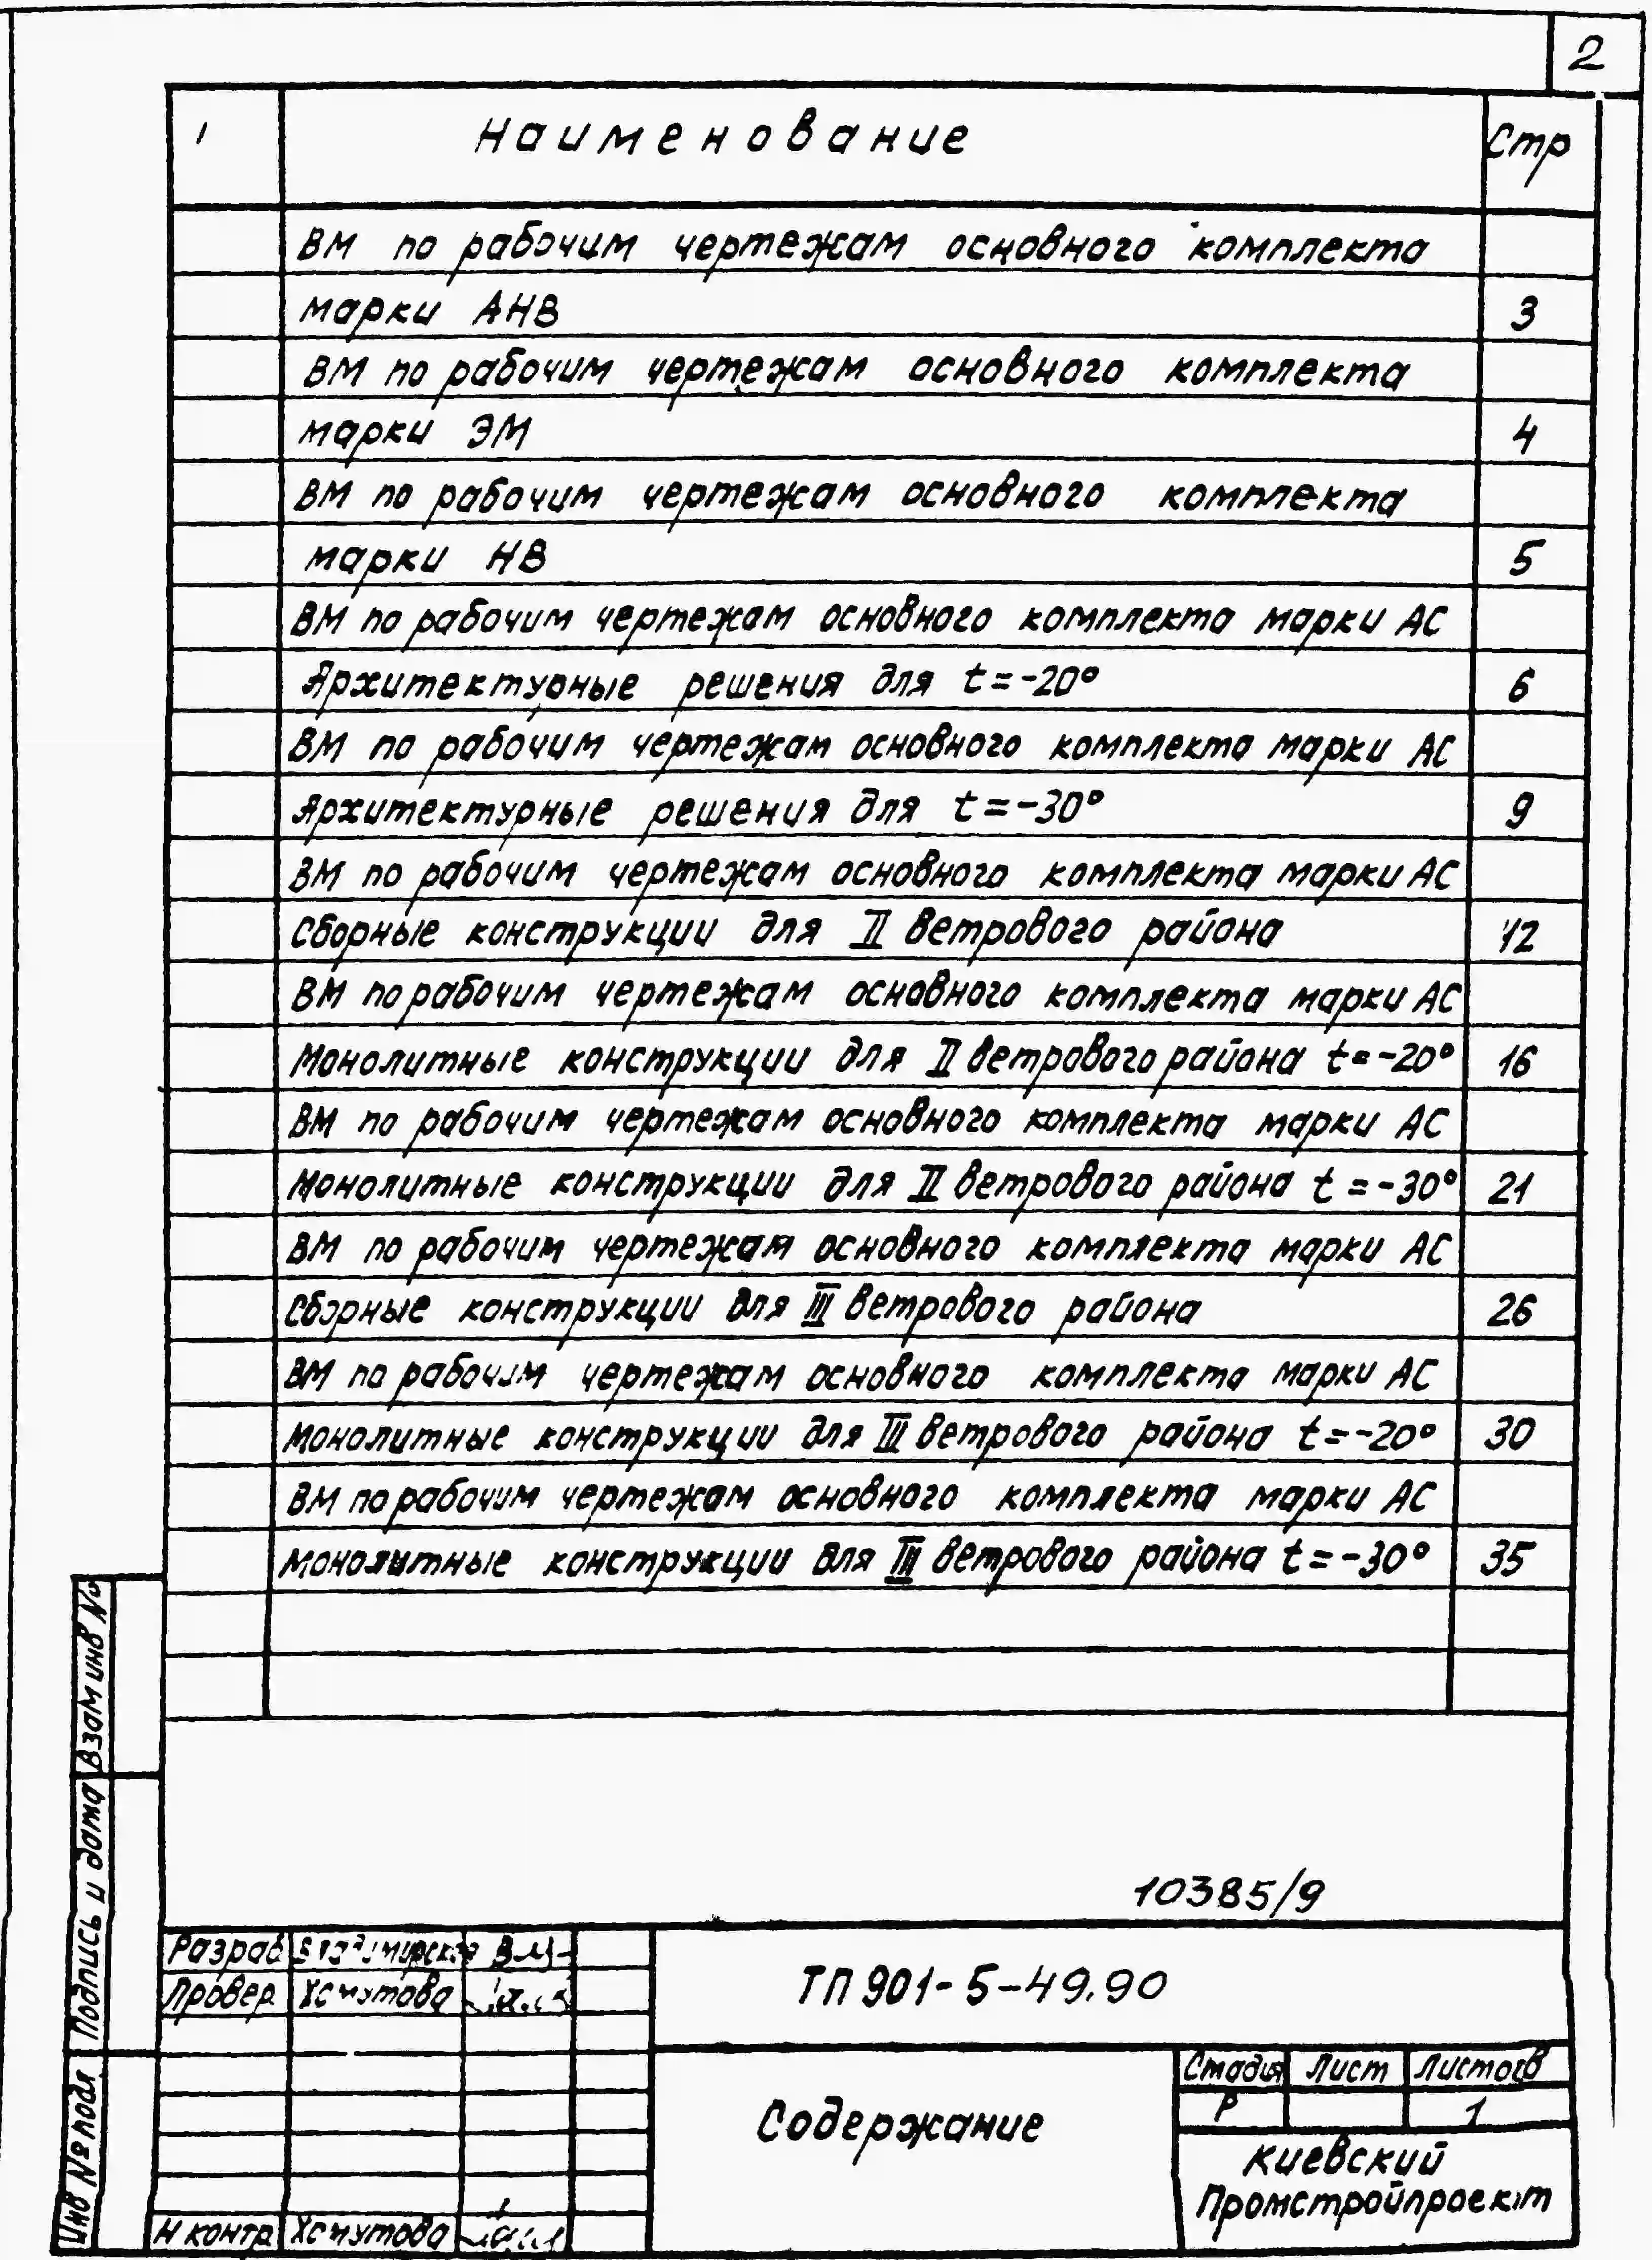 2
Наименование Стр
ВМ по рабочим чертежам основного комплекта
марки АНВ 3
ВМ по рабочим чертежам основного комплекта
марки ЭМ 4
ВМ по рабочим чертежам основного комплекта
марки НВ 5
ВМ по рабочим чертежам основного комплекта марки АС
Архитектурные решения для t=-20° 6
ВМ по рабочим чертежам основного комплекта марки АС
Архитектурные решения для t=-30° 9
ВМ по рабочим чертежам основного комплекта марки АС
Сборные конструкции для II ветрового района 12
ВМ по рабочим чертежам основного комплекта марки АС
Монолитные конструкции для II ветрового района t=-20° 16
ВМ по рабочим чертежам основного комплекта марки АС
Монолитные конструкции для II ветрового района t=-30° 21
ВМ по рабочим чертежам основного комплекта марки АС
Сборные конструкции для III ветрового района 26
ВМ по рабочим чертежам основного комплекта марки АС
Монолитные конструкции для III ветрового района t=-20° 30
ВМ по рабочим чертежам основного комплекта марки АС
Монолитные конструкции для III ветрового района t=-30° 35
Взам инв №
Подпись и дата
Инв № подл
10385/9
Разраб
Провер
Н контр
ТП 901-5-49.90
Содержание
Стадия Лист Листов
Р 1
Киевский
Промстройпроект